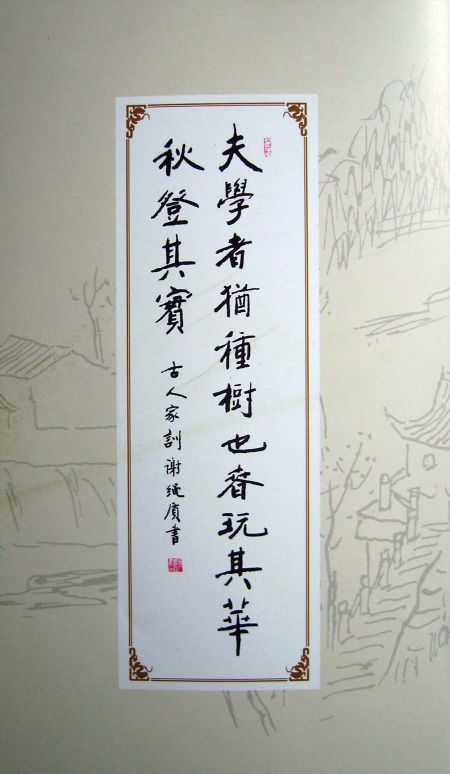 夫學者猶種樹也春玩其華
秋登其實 古人家訓 謝繩質書